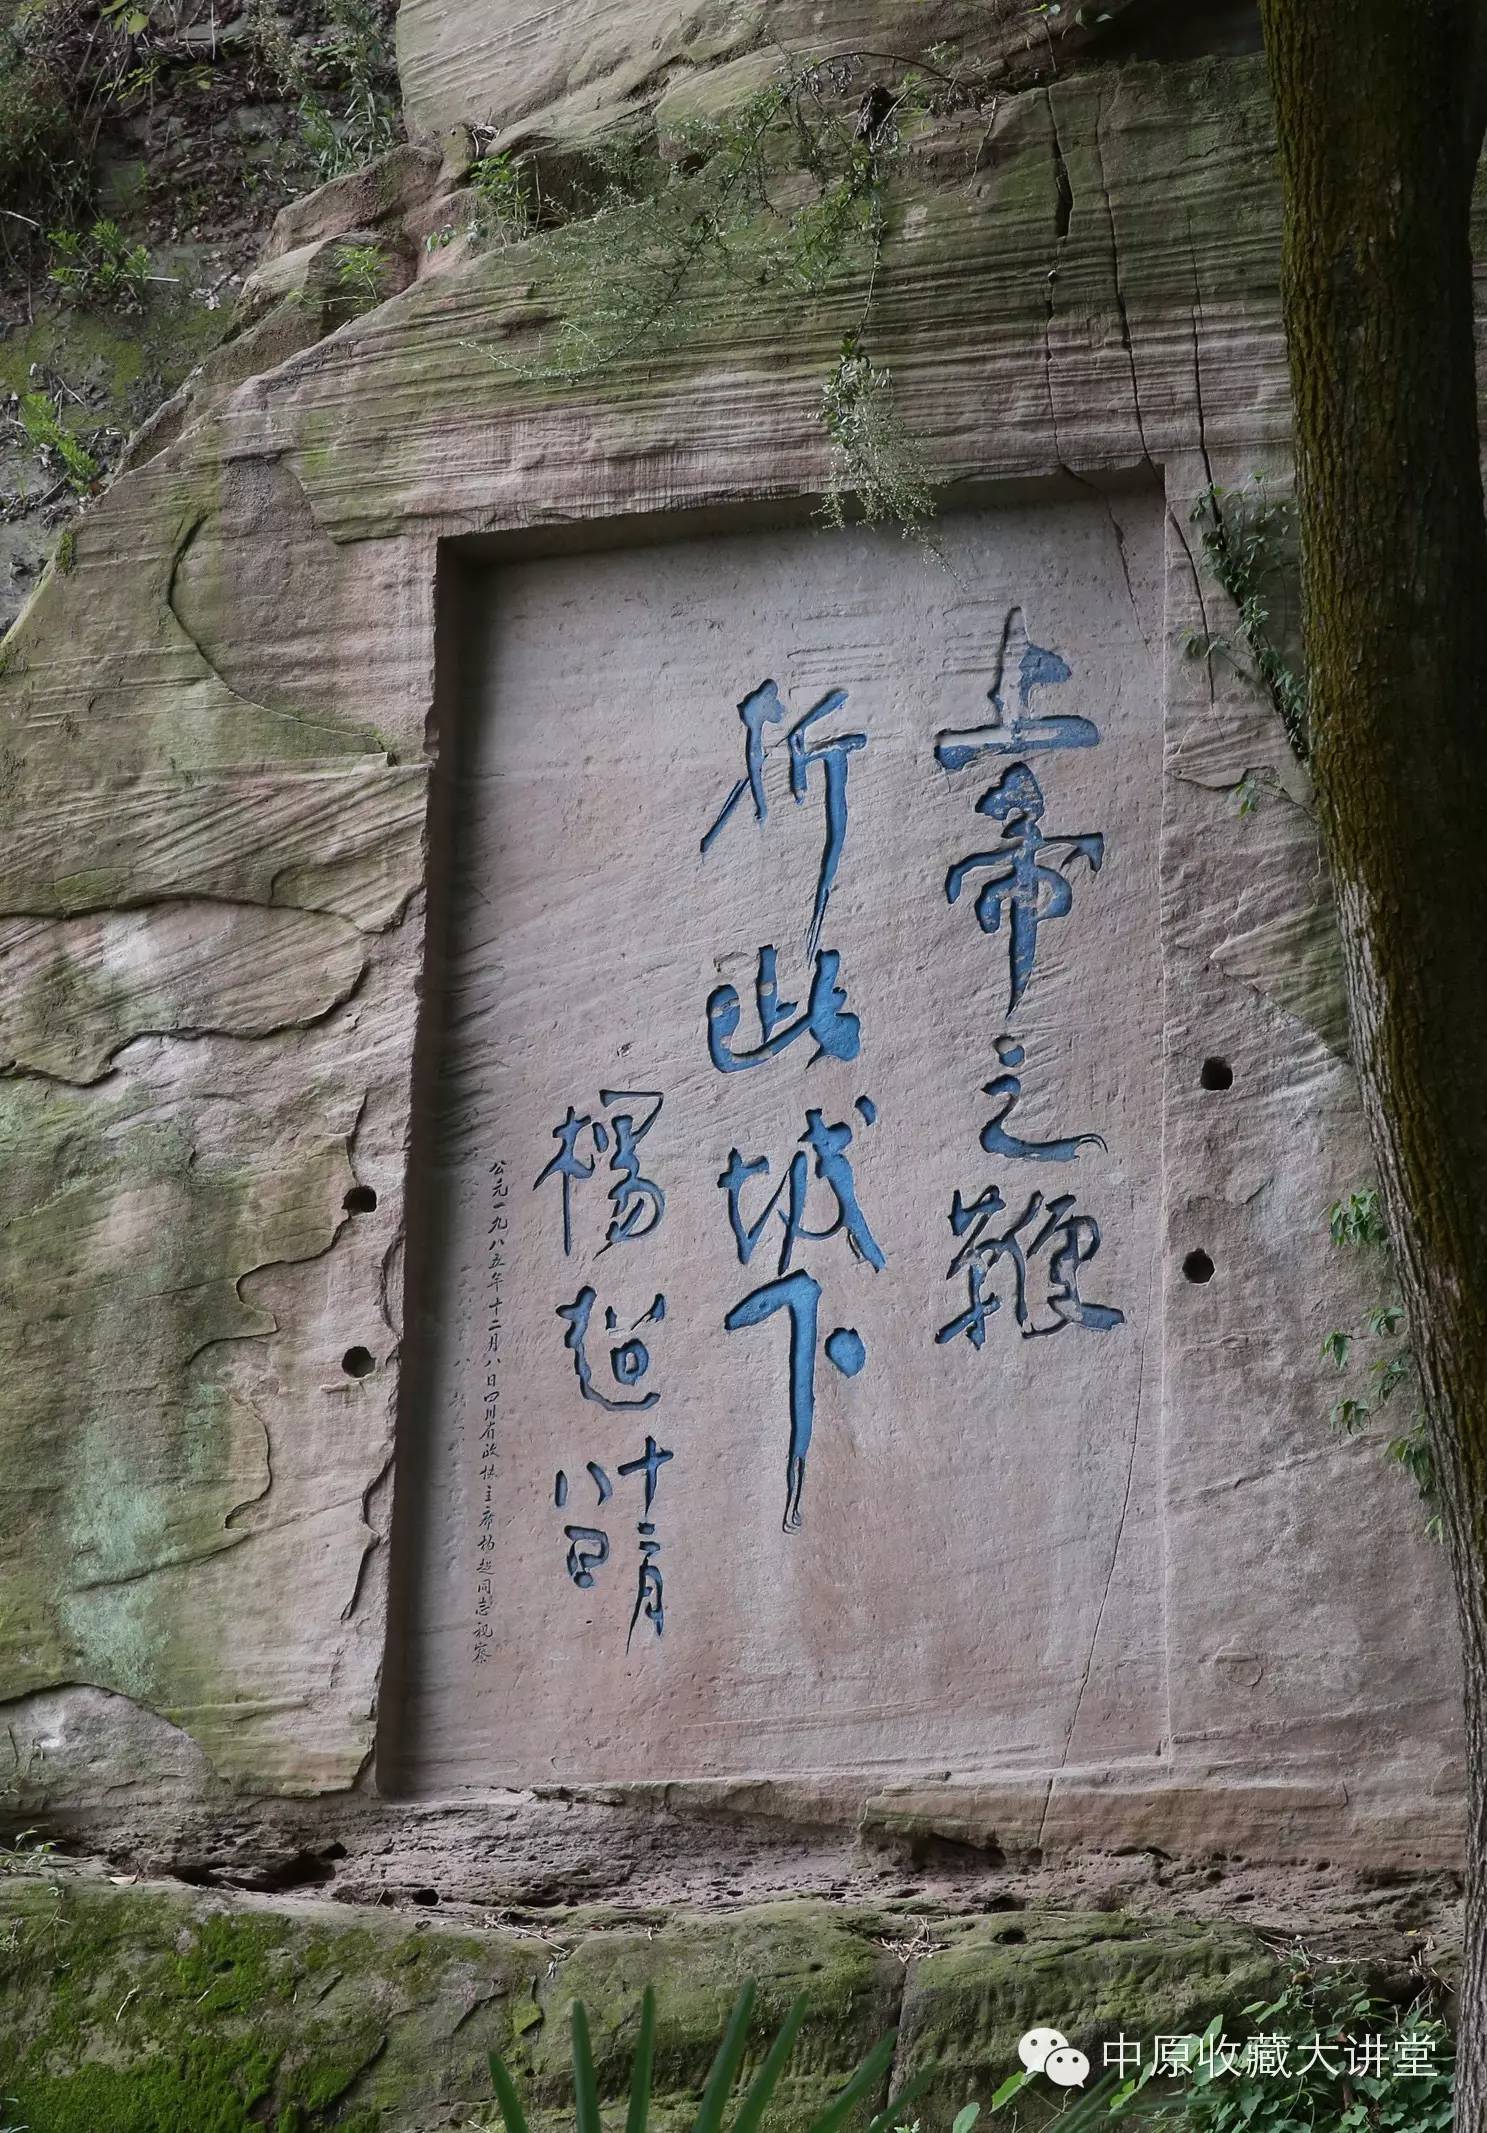 上帝之鞭
折此城下
楊超
十二月
八日
公元一九八五年十二月八日四川省政协主席杨超同志视察
中原收藏大讲堂